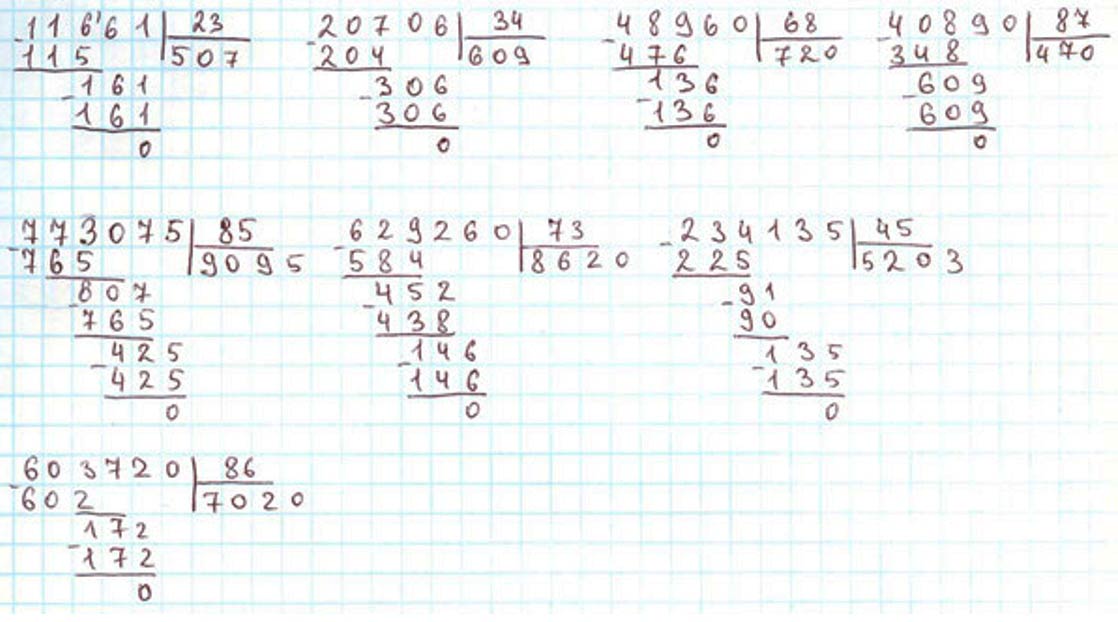 11661 23 20706 34 48960 68 40890 87
115 507 204 609 476 720 348 470
161 306 136 609
161 306 136 609
0 0 0 0
773075 85 629260 73 234135 45
765 9095 584 8620 225 5203
807 452 91
765 438 90
425 146 135
425 146 135
0 0 0
603720 86
602 7020
172
172
0